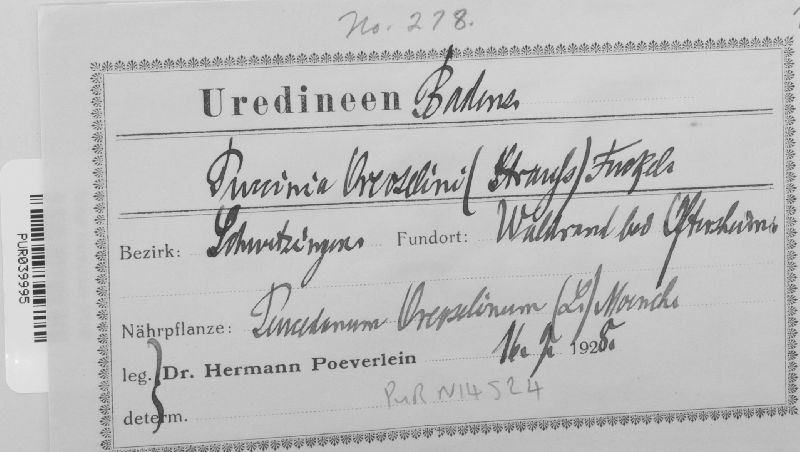 No. 278.
Uredineen Badens.
Puccinia Oreoselini (Strauss) Fuckel.
Bezirk: Schwetzingen. Fundort: Waldrand bei Oftersheim.
Nährpflanze: Peucedanum Oreoselinum (L.) Moench.
leg. Dr. Hermann Poeverlein 16. V. 1928.
determ.
PUR N14524
PUR039995